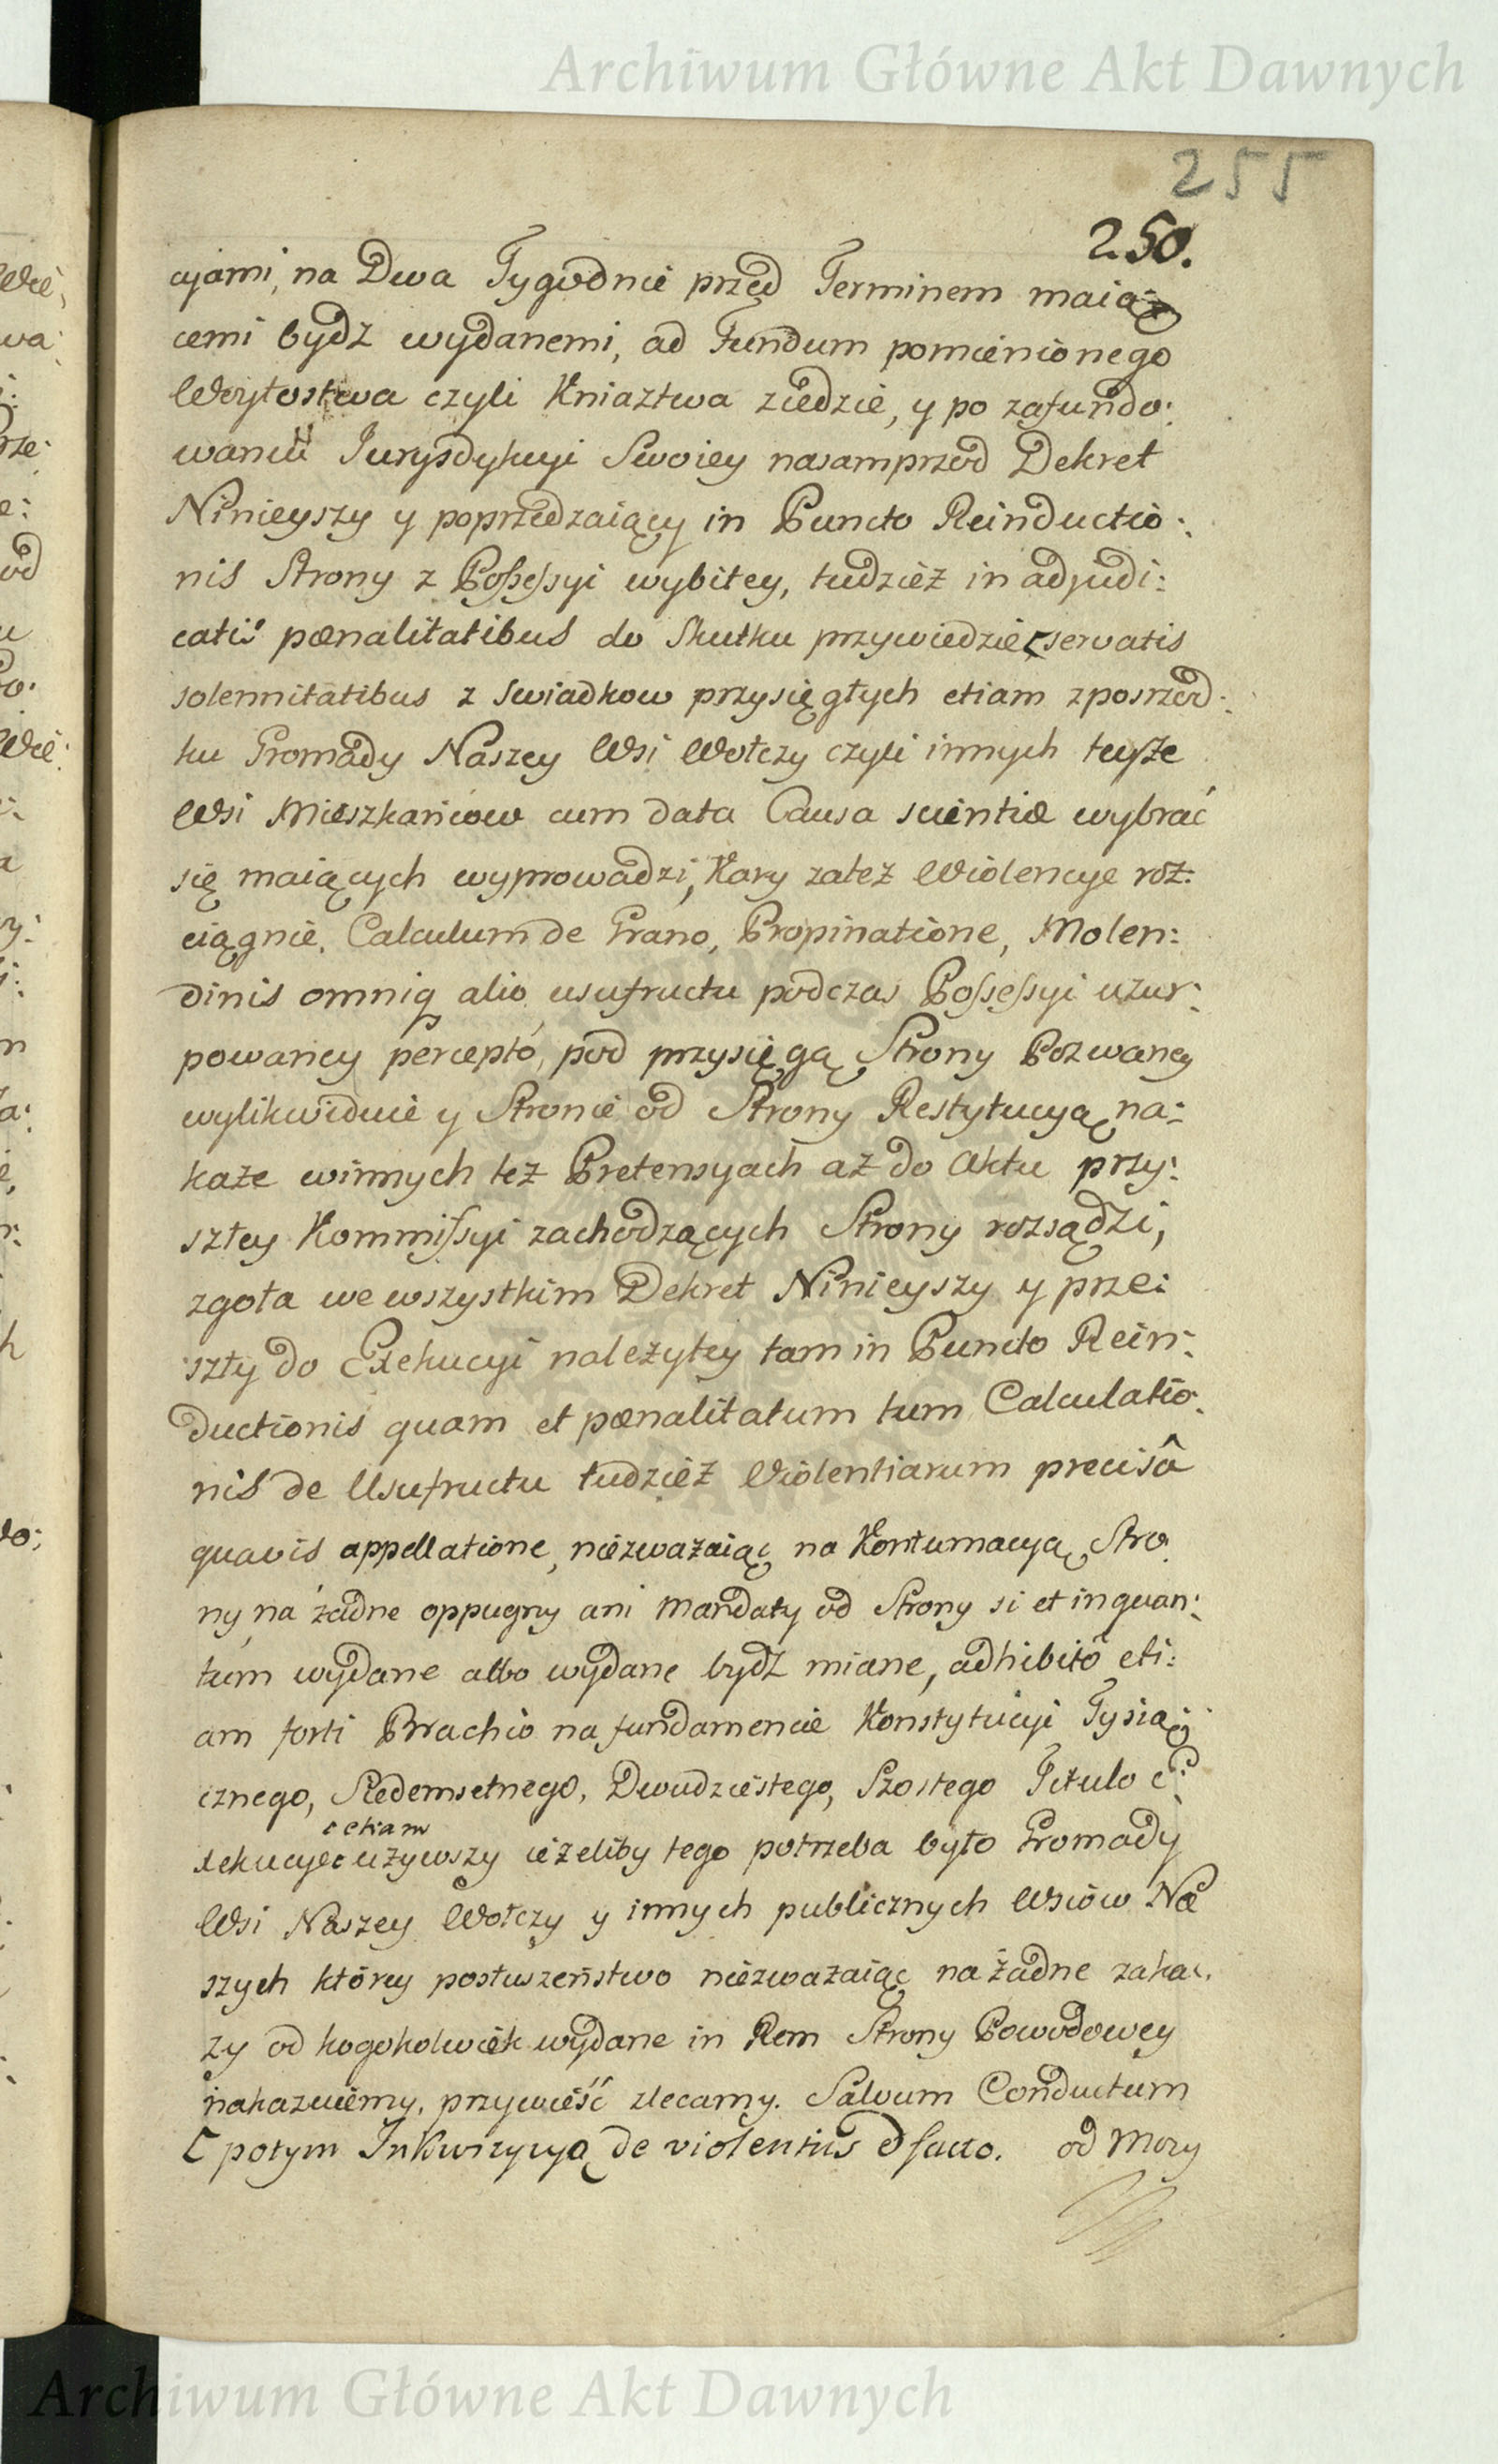 Archiwum Główne Akt Dawnych
255
250.
cjami, na Dwa Tygodnie przed Terminem maią:
cemi bydz wydanemi, ad Fundum pomienionego
Woytostwa czyli Kniaztwa ziedzie, y po zafundo:
waniu Jurysdykcyi Swoiey nasamprzod Dekret
Ninieyszy y poprzedzaiący in Puncto Reinductio:
nis Strony z Possessyi wybitey, tudzież in adjudi:
catis pœnalitatibus do Skutku przywiedzie, servatis
solennitatibus z swiadkow przysięgłych etiam zposrzod:
ku Gromady Naszey Wsi Wołczy czyli innych teyże
Wsi Mieszkańcow cum data Causa scientiæ wybrać
się maiących wyprowadzi, Kary zateż Wiolencye roz:
ciągnie. Calculum de Grano, Propinatione, Molen:
dinis omniq alio usufructu podczas Possessyi uzur:
powaney percepto, pod przysięgą Strony Pozwaney
wylikwiduie y Stronie od Strony Restytucyą na:
każe winnych też Pretensyach aż do Aktu przy:
szłey Kommissyi zachodzących Strony rozsądzi,
zgoła we wszystkim Dekret Ninieyszy y prze:
szły do Exekucyi należytey tam in Puncto Rein:
ductionis quam et pœnalitatum tum Calculatio:
nis de Usufructu tudzież Wiolentiarum precisâ
quavis appellatione, niezważaiąc na Kontumacyą Stro:
ny, na żadne oppugny ani Mandaty od Strony si et inquan:
tum wydane albo wydane bydz miane, adhibitô eti:
am forti Brachio na fundamencie Konstytucyi Tysią:
cznego, Siedemsetnego, Dwudziestego, Szostego Titulo e:
etiam
xekucye używszy ieżeliby tego potrzeba było Gromady
Wsi Naszey Wołczy y innych publicznych Wsiów Na
szych którey posłuszeństwo niezważaiąc na żadne zaka:
zy od kogokolwiek wydane in Rem Strony Powodowey
nakazuiemy, przywieść zlecamy. Salvum Conductum
[ potym Inkwizycyą de violentiis d facto. od Mocy
Archiwum Główne Akt Dawnych